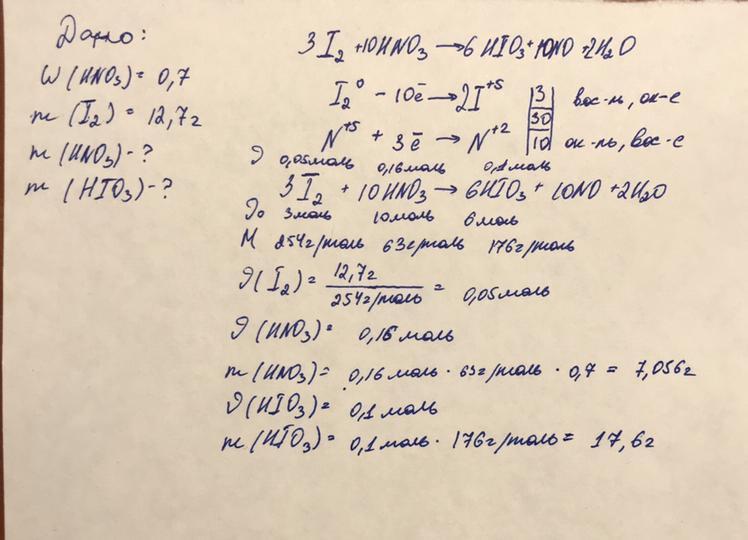 Дано:
W(HNO₃) = 0,7
m(I₂) = 12,7г
m(HNO₃) - ?
m(HIO₃) - ?
3I₂ + 10HNO₃ → 6HIO₃ + 10NO + 2H₂O
I₂⁰ - 10ē → 2I⁺⁵ | 3 | вос-ль, ок-е
30
N⁺⁵ + 3ē → N⁺² | 10 | ок-ль, вос-е
ν 0,05моль 0,16моль 0,1моль
3I₂ + 10HNO₃ → 6HIO₃ + 10NO + 2H₂O
ν₀ 3моль 10моль 6моль
M 254г/моль 63г/моль 176г/моль
ν(I₂) = 12,7г / 254г/моль = 0,05моль
ν(HNO₃) = 0,16моль
m(HNO₃) = 0,16моль · 63г/моль · 0,7 = 7,056г
ν(HIO₃) = 0,1моль
m(HIO₃) = 0,1моль · 176г/моль = 17,6г